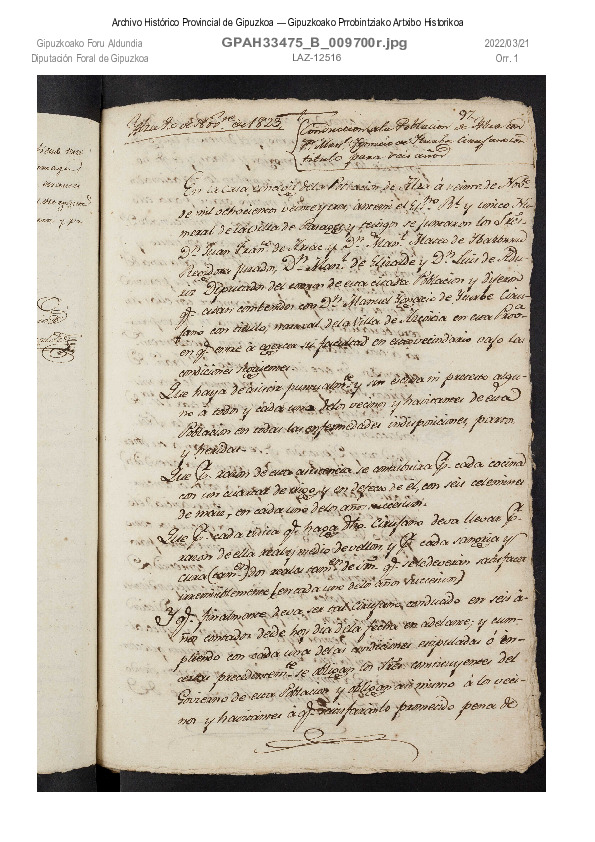 Archivo Histórico Provincial de Gipuzkoa — Gipuzkoako Prrobintziako Artxibo Historikoa
Gipuzkoako Foru Aldundia
Diputación Foral de Gipuzkoa
GPAH33475_B_009700r.jpg
LAZ-12516
2022/03/21
Orr. 1
97
de 1823
Conduccion de la Poblacion de Alza con
Dn. Man.l Ygnacio de Yturbe Cirujano con
titulo para seis años
En la Casa Concejil de la Poblacion de Alza á veinte de Nov.e
de mil ochocientos veinte y tres, ante mi el Es.no R.l y unico Nu-
meral de la Villa de Pasage y testigos se juntaron los Sres
Dn. Juan Fran.co de Arrue y Dn. Man.l
Jurado, Dn. Man.l de Elizalde y Dn. Luis de Adu-
riz Deputados del comun de esta citada Poblacion y dijeron
q.e estan contenidos con Dn. Manuel Ygnacio de Yturbe Ciru-
jano con titulo, natural de la Villa de Azcoitia en esta Prov.a
en q.e entre á egercer su facultad en este vecindario vajo las
condiciones siguientes.
Que haya de asistir puntualm.te y sin escusa ni pretexto algu-
no a todos y cada uno de los vecinos y havitantes de esta
Poblacion en todas las enfermedades indisposiciones, partos
y heridas.
Que p.r razon de esta asistencia se contribuira p.r cada cocina
con un cuartal de trigo, y en defecto de el, con seis celemines
de maiz, en cada uno de los años sucesivos.
Que p.r cada visita q.e haga dho. Cirujano deva llevar p.r
razon de ella real y medio de vellon y p.r cada sangria y
cura dos reales q.e se le deverán satisfacer
en cada uno de los años sucesivos
Y q.e finalmente deva ser tal Cirujano conducido en seis a-
ños contados desde hoy dia de la fecha en adelante; y cum-
pliendo con cada una de las condiciones estipuladas ó en-
precedentem.te se obligan los Sres constituyentes del
Govierno de esta Poblacion y obligan asi mismo á los veci-
nos y havitantes á q.e satisfarán lo prometido pena de